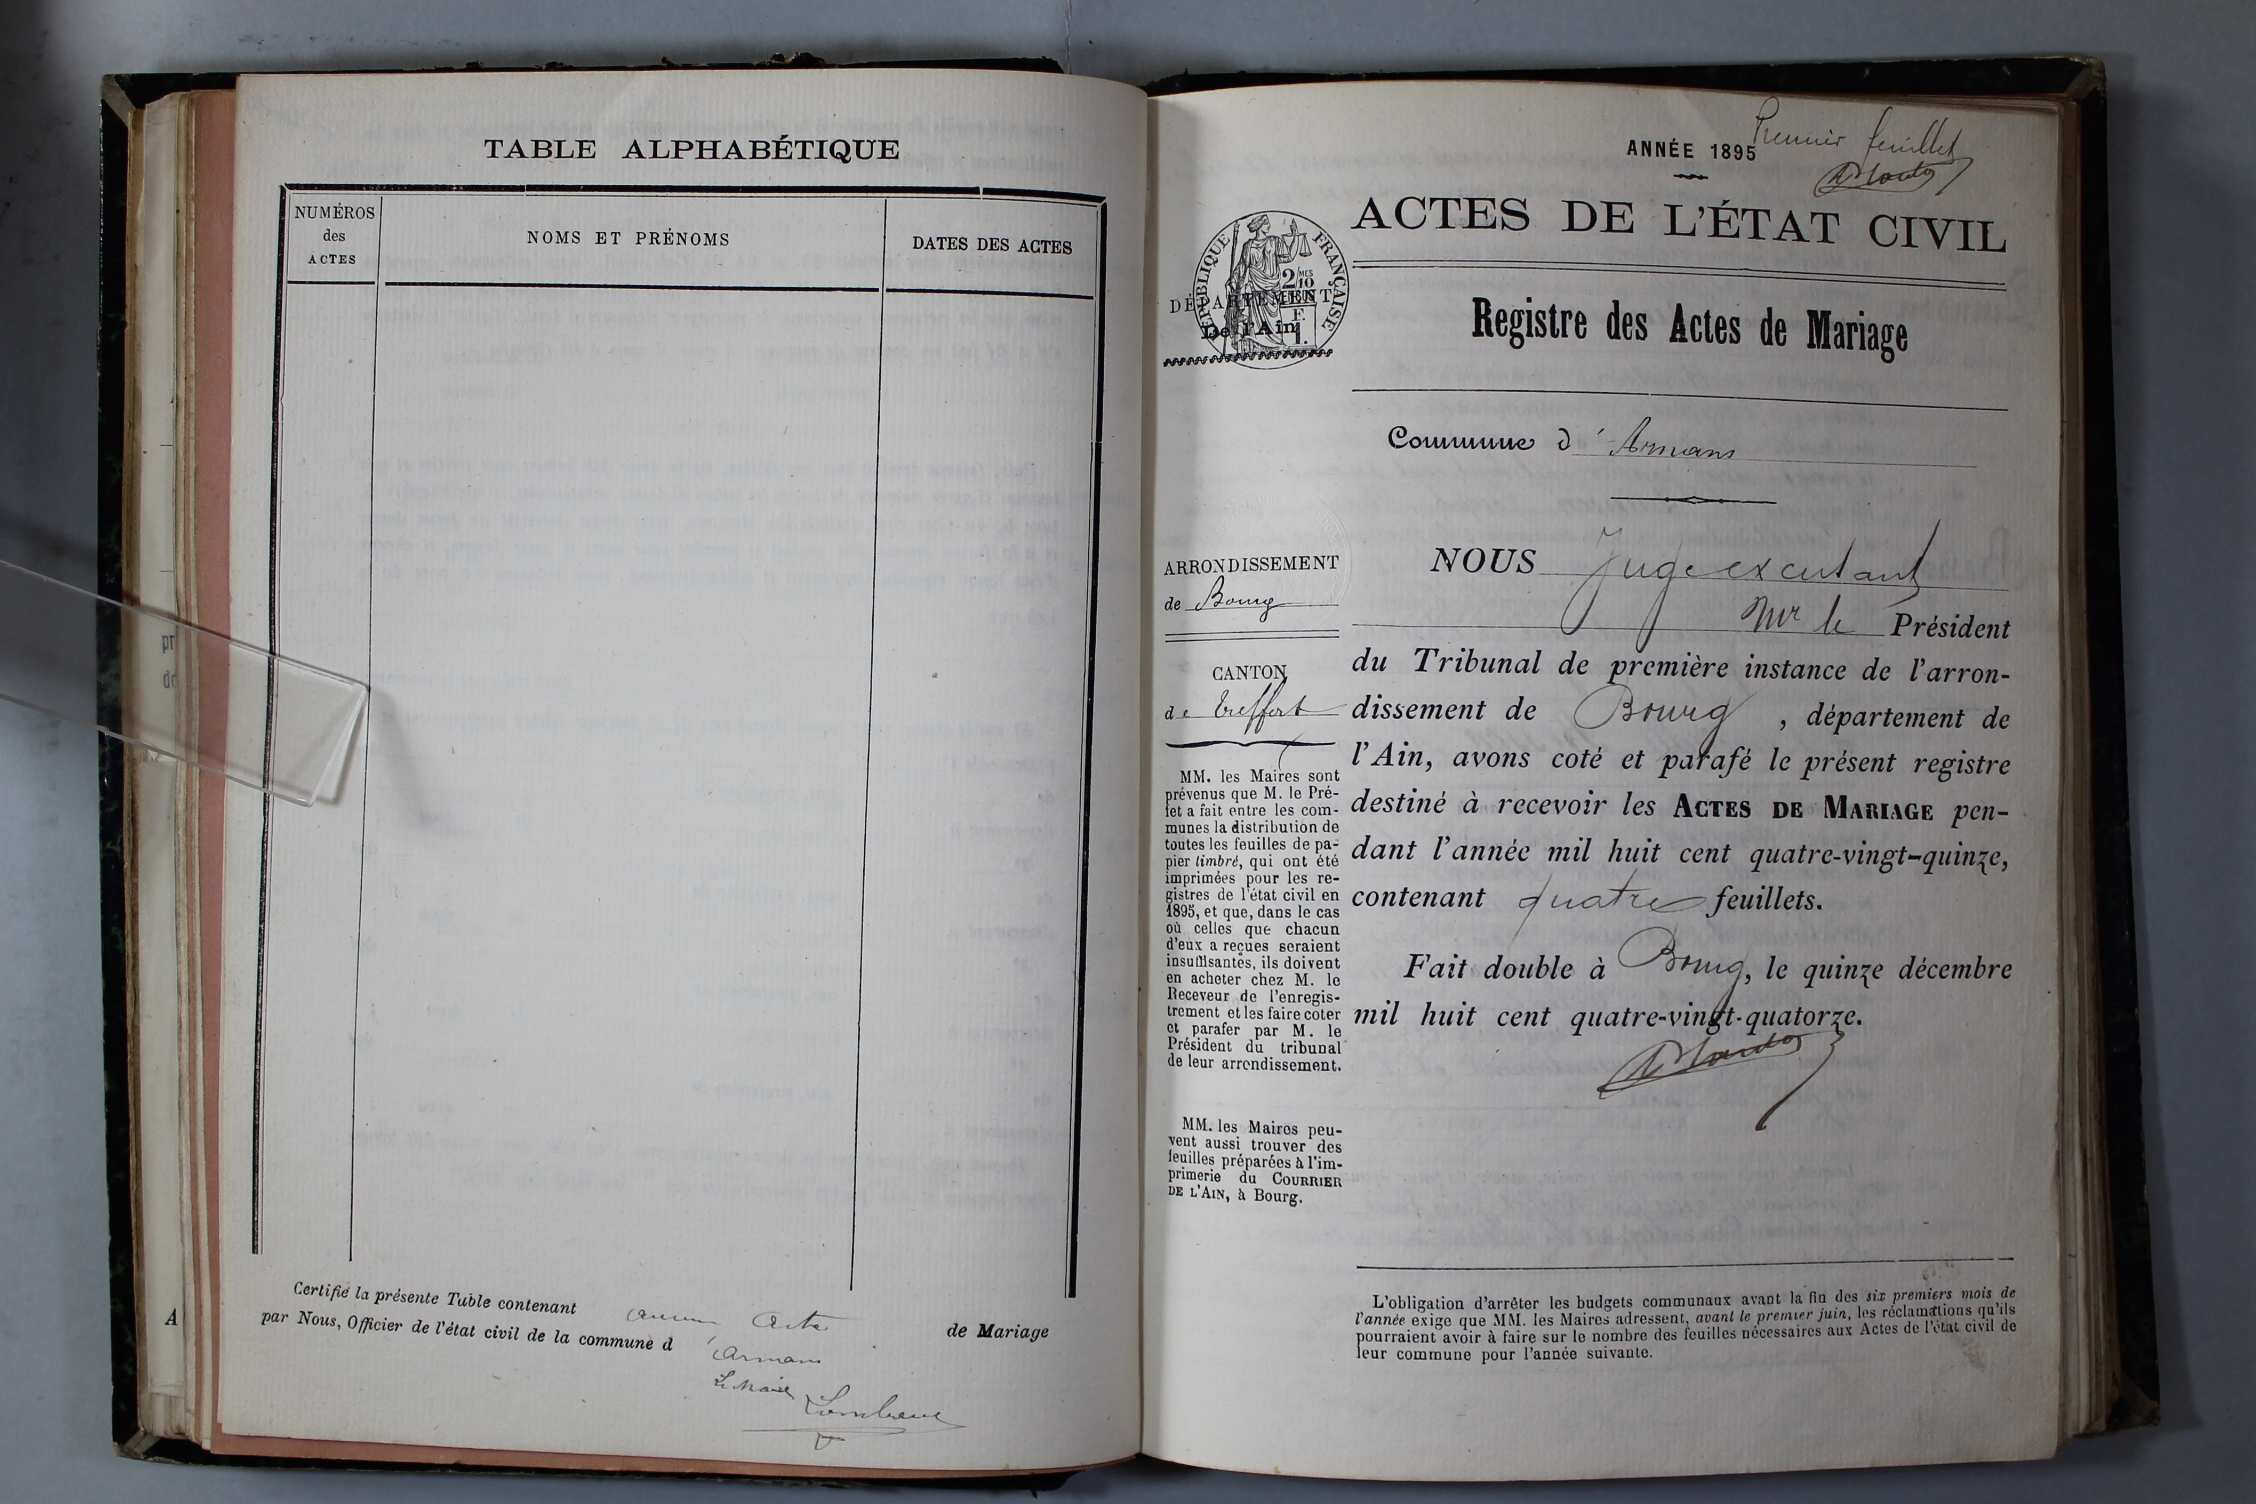 TABLE ALPHABÉTIQUE
NUMÉROS
des
ACTES
NOMS ET PRÉNOMS
DATES DES ACTES
Certifié la présente Table contenant aucun Acte de Mariage
par Nous, Officier de l'état civil de la commune d'Arnans
Le Maire
pr
A
ANNÉE 1895
Premier feuillet
ACTES DE L'ÉTAT CIVIL
RÉPUBLIQUE FRANÇAISE
2 MES
10
EN SUS
DÉPARTEMENT
De l'Ain
Registre des Actes de Mariage
Commune d'Arnans
ARRONDISSEMENT
de Bourg
CANTON
de Treffort
MM. les Maires sont
prévenus que M. le Pré-
fet a fait entre les com-
munes la distribution de
toutes les feuilles de pa-
pier timbré, qui ont été
imprimées pour les re-
gistres de l'état civil en
1895, et que, dans le cas
où celles que chacun
d'eux a reçues seraient
insuffisantes, ils doivent
en acheter chez M. le
Receveur de l'enregis-
trement et les faire coter
et parafer par M. le
Président du tribunal
de leur arrondissement.
MM. les Maires peu-
vent aussi trouver des
feuilles préparées à l'im-
primerie du COURRIER
DE L'AIN, à Bourg.
NOUS Juge excusant
Mr le Président
du Tribunal de première instance de l'arron-
dissement de Bourg, département de
l'Ain, avons coté et parafé le présent registre
destiné à recevoir les ACTES DE MARIAGE pen-
dant l'année mil huit cent quatre-vingt-quinze,
contenant quatre feuillets.
Fait double à Bourg, le quinze décembre
mil huit cent quatre-vingt-quatorze.
L'obligation d'arrêter les budgets communaux avant la fin des six premiers mois de
l'année exige que MM. les Maires adressent, avant le premier juin, les réclamations qu'ils
pourraient avoir à faire sur le nombre des feuilles nécessaires aux Actes de l'état civil de
leur commune pour l'année suivante.